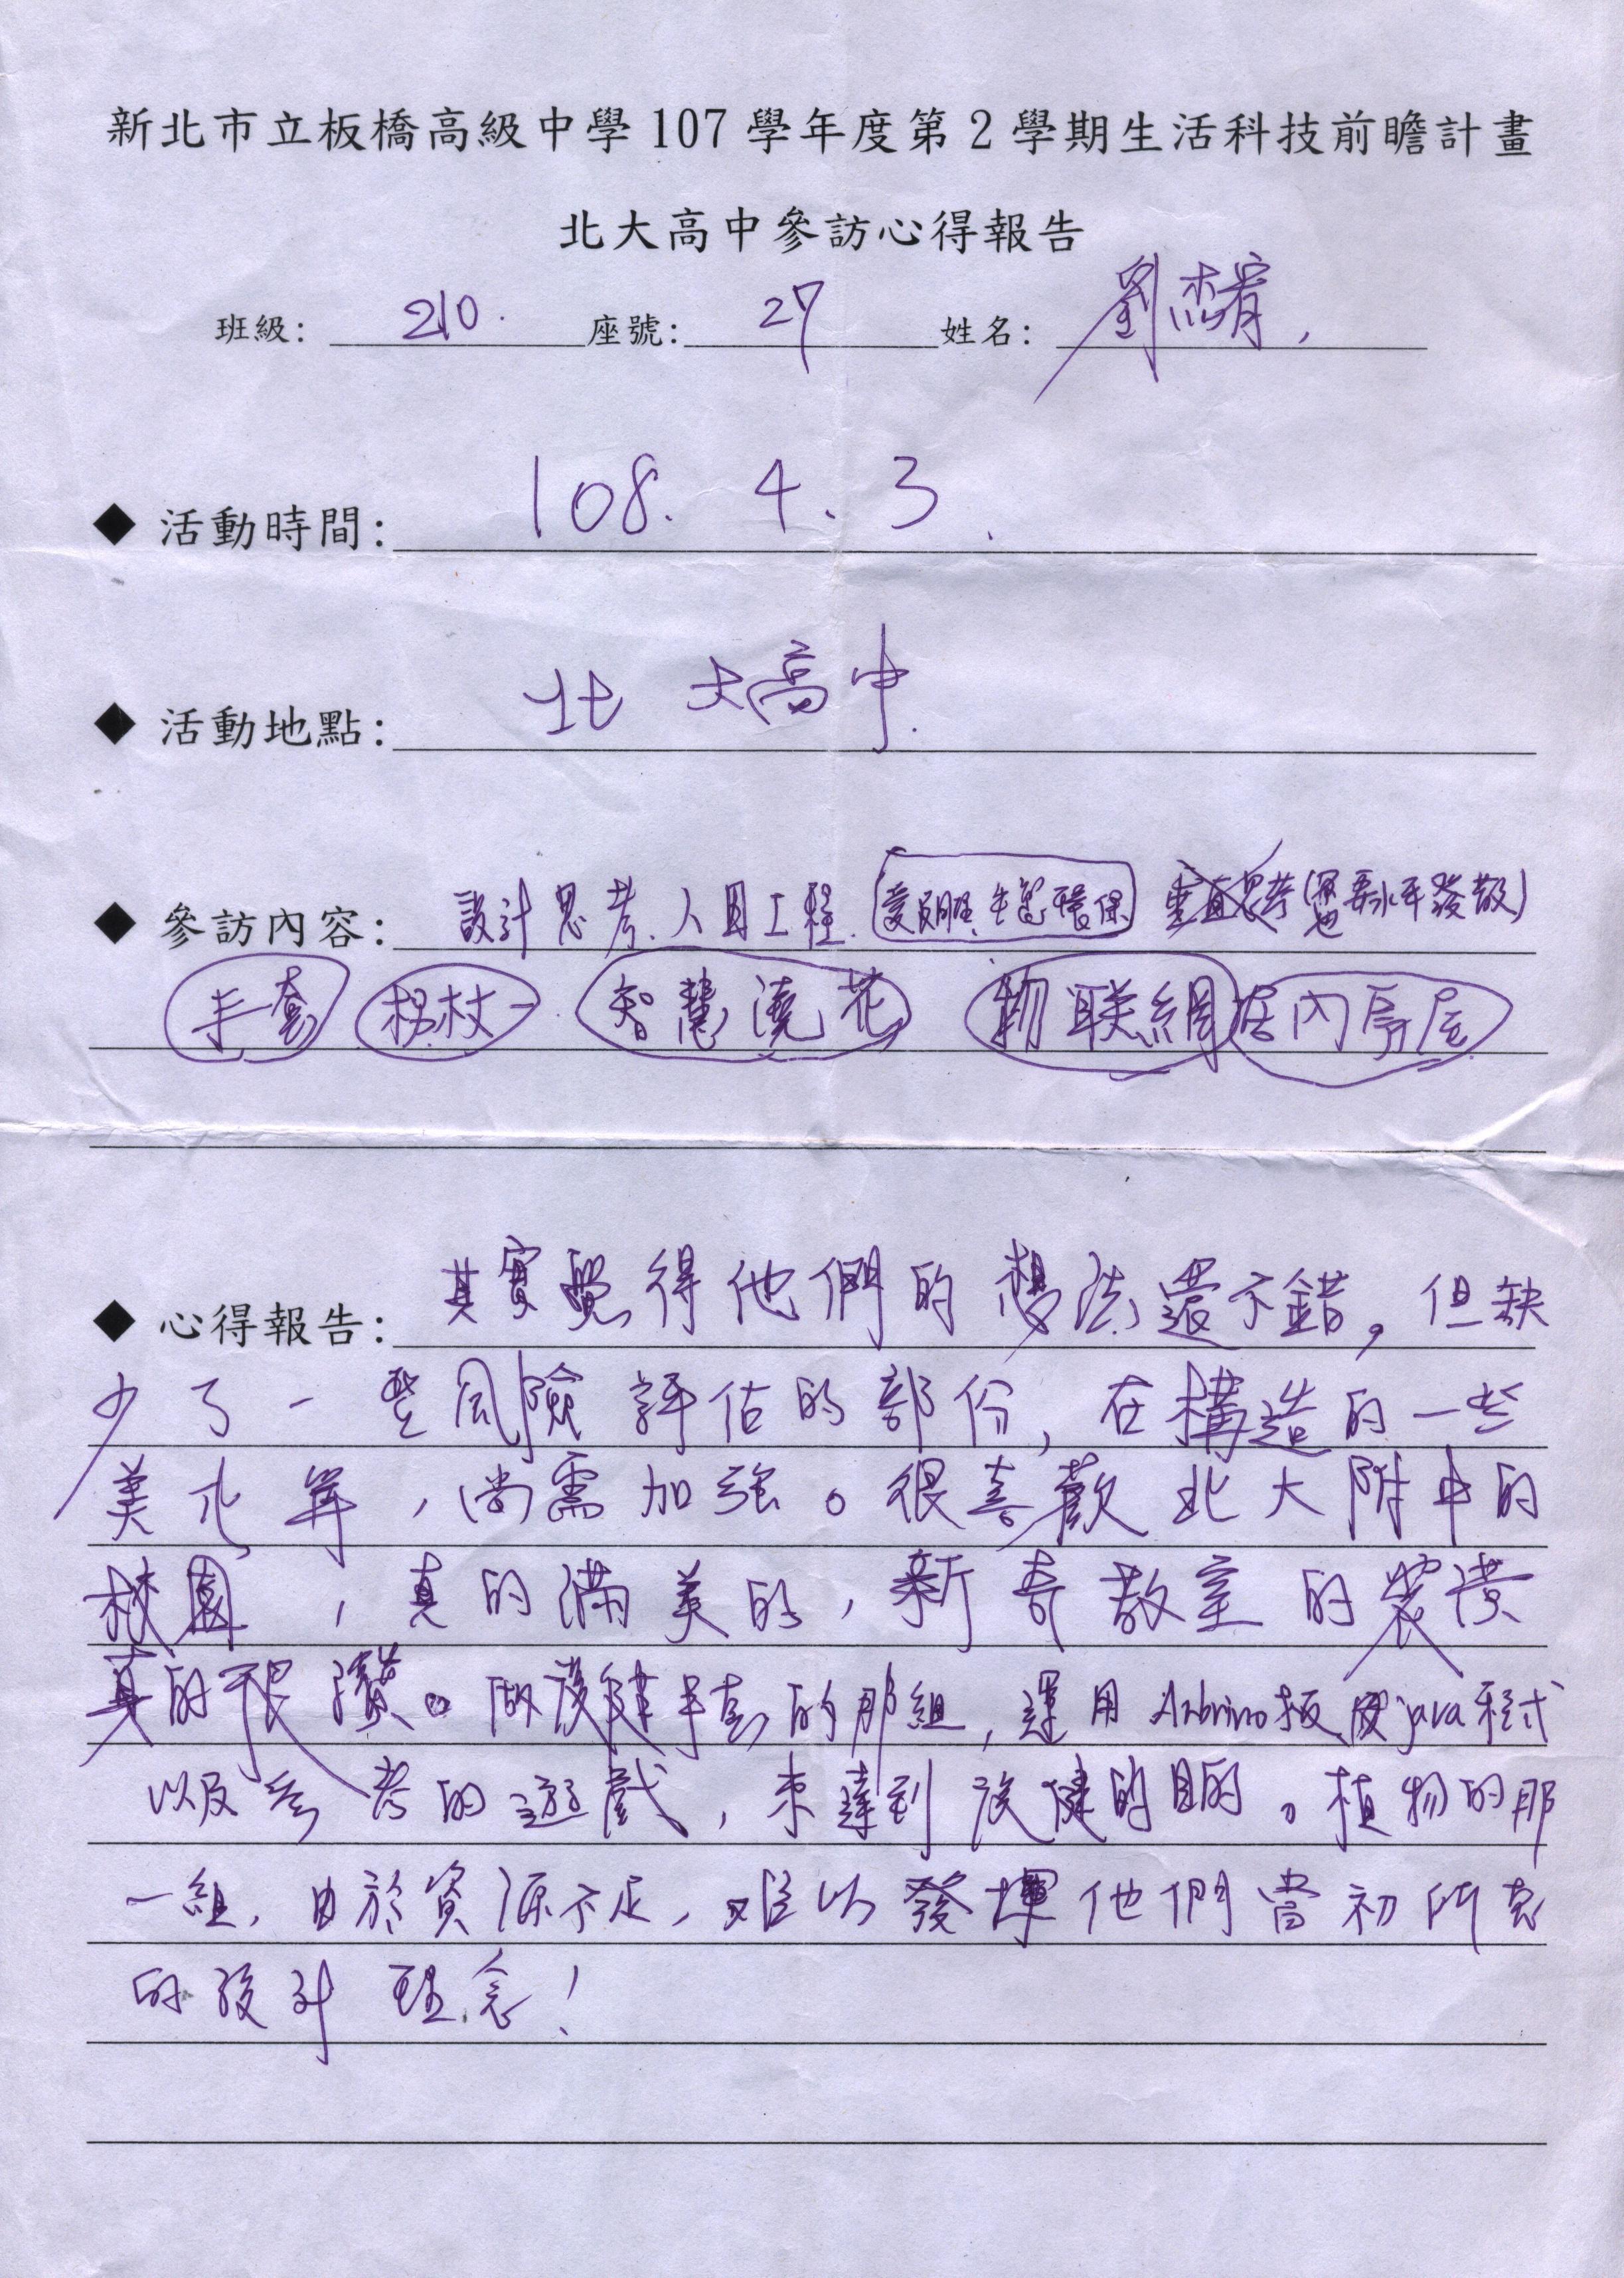 新北市立板橋高級中學107學年度第2學期生活科技前瞻計畫
北大高中參訪心得報告
班級: 210. 座號: 27 姓名: 劉杰宥,
◆ 活動時間: 108. 4. 3.
◆ 活動地點: 北大高中.
◆ 參訪內容: 設計思考. 人因工程. 環保 垂直思考(也要水平發散)
手套 拐杖 智慧澆花 物联網 居內房屋
◆ 心得報告: 其實覺得他們的想法還不錯,但缺
少了一些風險評估的部份,在構造的一些
美化等,尚需加強。很喜歡北大附中的
校園,真的滿美的,新奇教室的裝潢
真的很讚。做復健手套的那組,運用 板 java程式
以及參考的遊戲,來達到復健的目的。植物的那
一組,由於資源不足,難以發揮他們當初所
的設計理念!